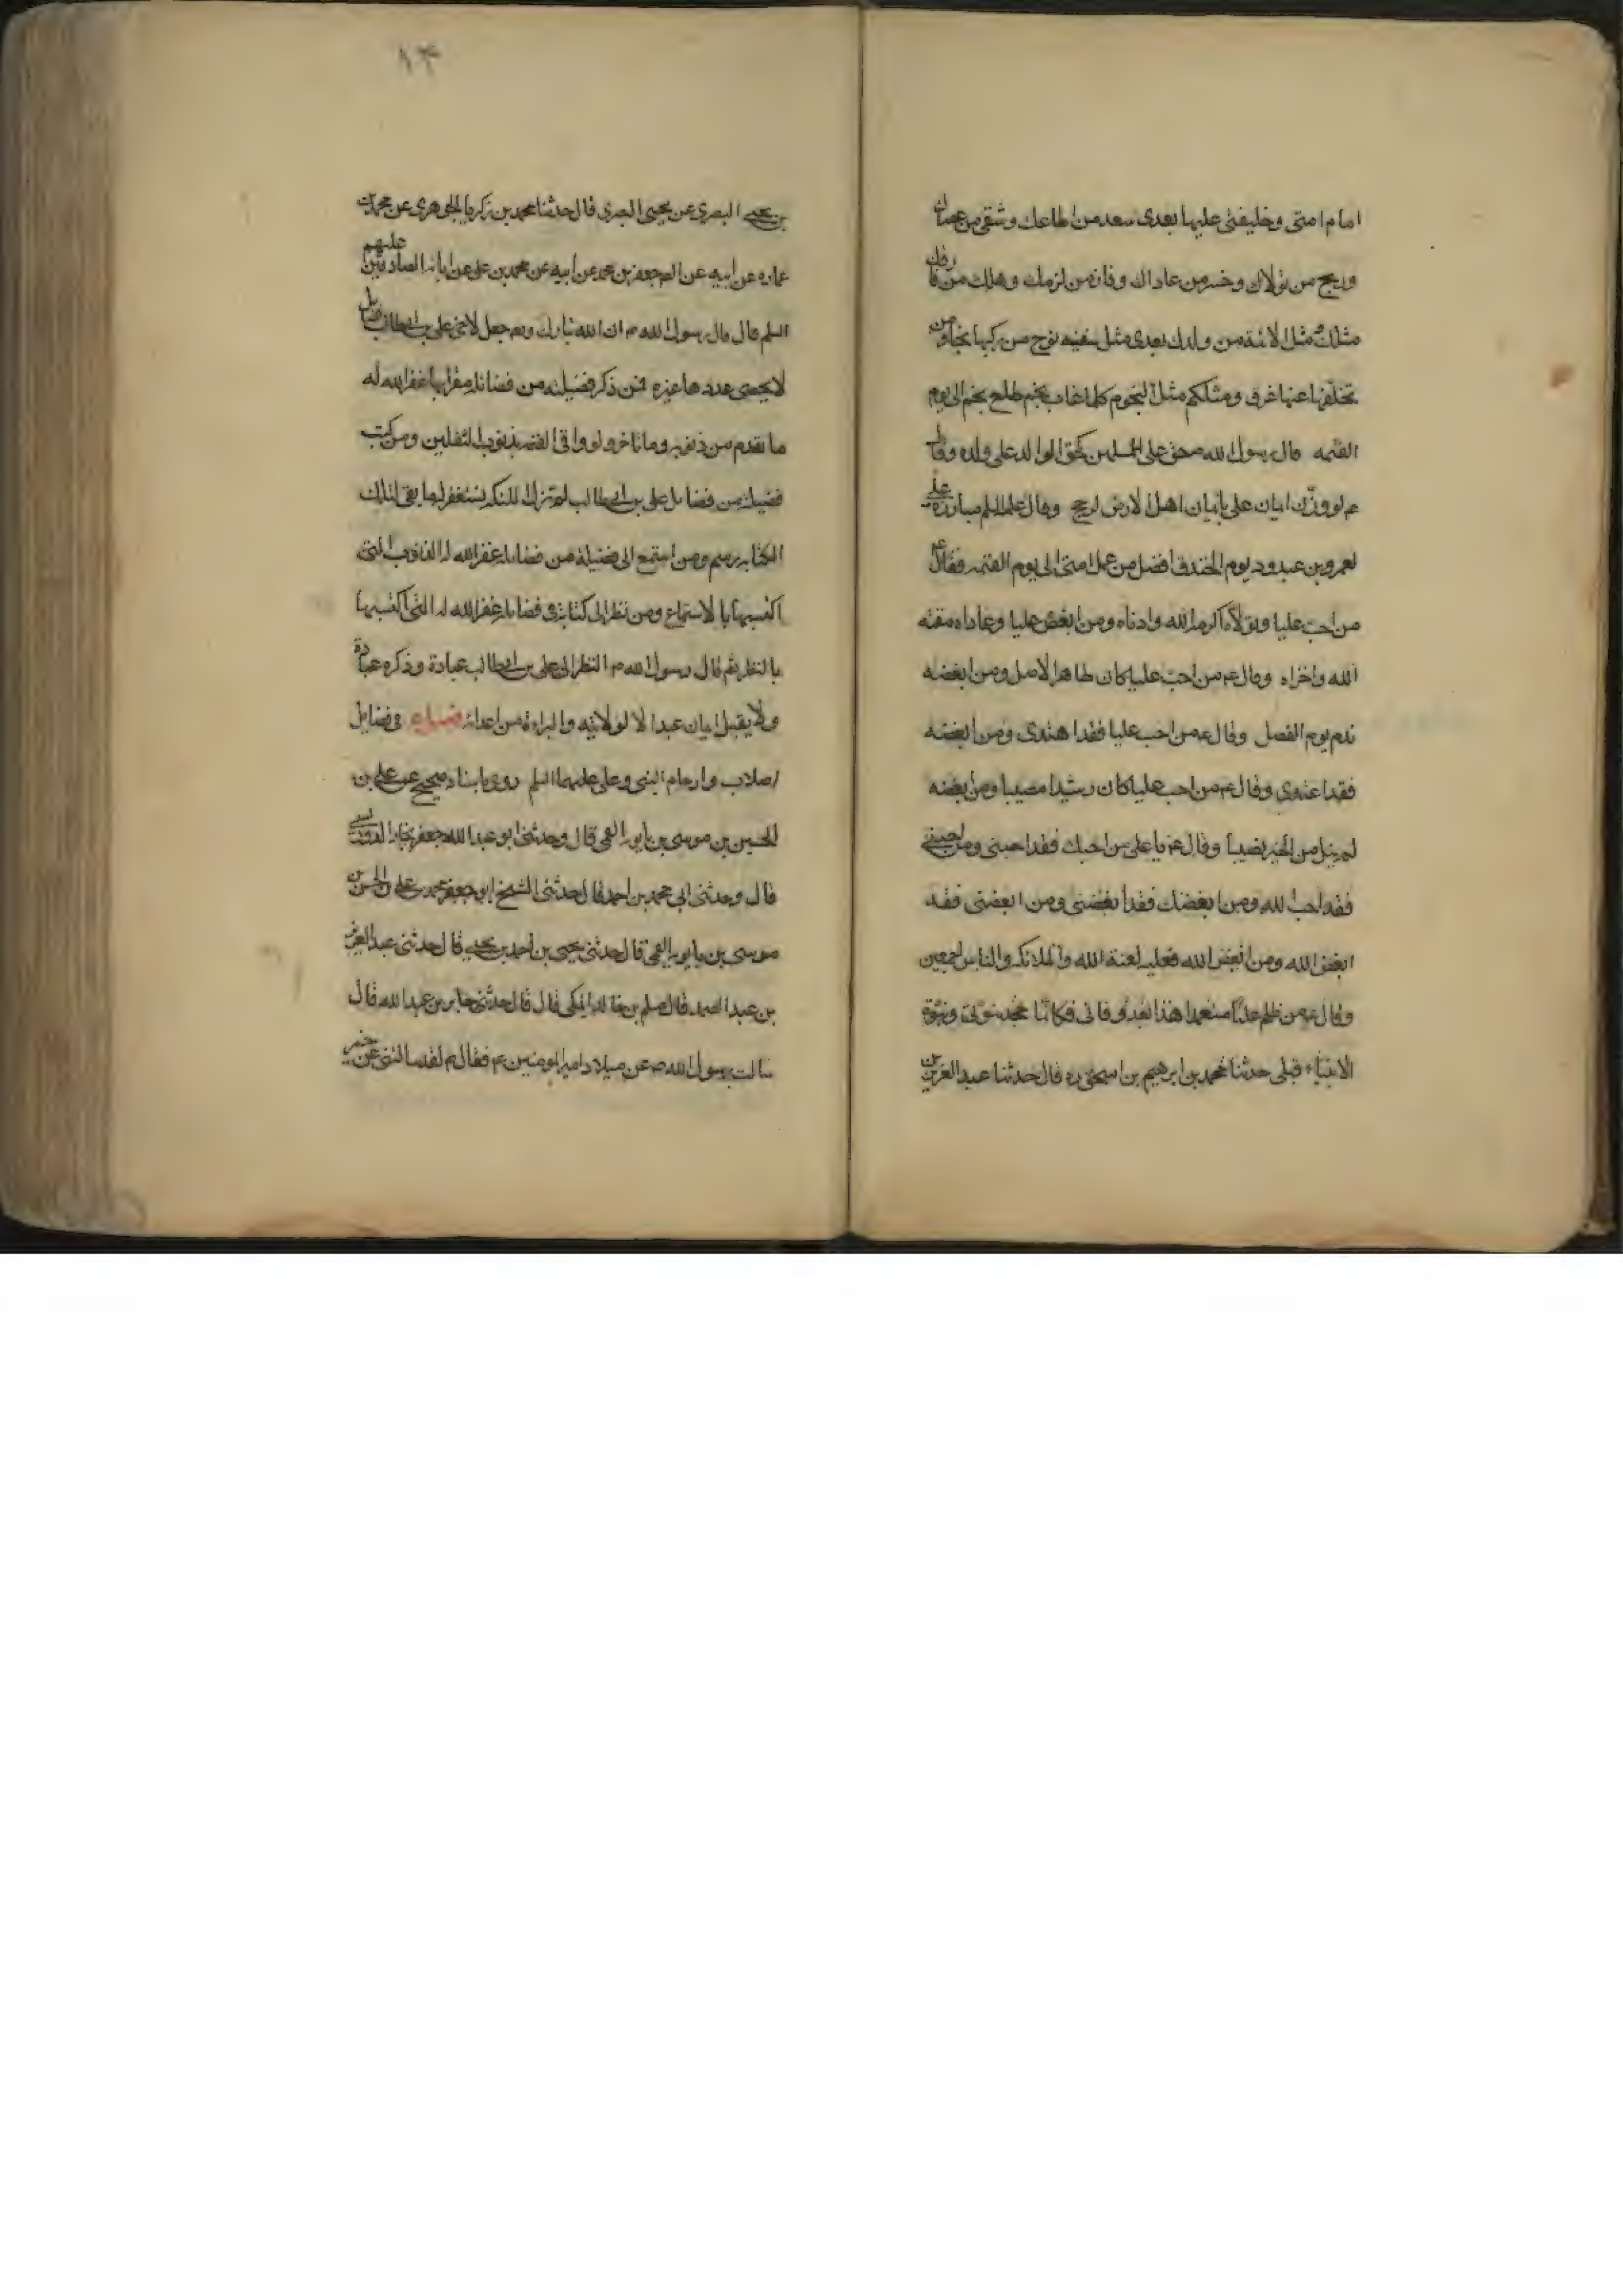 امام امتى وخليفتى عليها بعدى سعد من اطاعك وشقى من عصاك
وربح من تولاك وخسر من عاداك وفاز من لزمك وهلك من فارقك
مثلك ومثل الائمة من ولدك بعدى مثل سفينه نوح من ركبها نجا ومن
تخلف عنها غرق ومثلكم مثل النجوم كلما غاب نجم طلع نجم الى يوم
القيمه قال رسول الله ص حق على المسلمين كحق الوالد على ولده وقال
ع لو وزن ايمان على بايمان اهل الارض لرجح وقال عليه السلم مبارزة على
لعمرو بن عبدود يوم الخندق افضل من عمل امتى الى يوم القيمه فقال ع
من احب عليا وتولاه اكرمه الله وادناه ومن ابغض عليا وعاداه مقته
الله واخزاه وقال ع من احب عليا كان طاهر الاصل ومن ابغضه
ندم يوم الفصل وقال ع من احب عليا فقد اهتدى ومن ابغضه
فقد اعتدى وقال ع من احب عليا كان رشيدا مصيبا ومن ابغضه
لم ينل من الخير نصيبا وقال ع يا على من احبك فقد احبنى ومن احبنى
فقد احب الله ومن ابغضك فقد ابغضنى ومن ابغضنى فقد
ابغض الله ومن ابغض الله فعليه لعنة الله والملائكه والناس اجمعين
وقال ع من ظلم عليا مقعدا هذا بعد وفاتى فكانما جحد نبوتى ونبوة
الانبياء قبلى حدثنا محمد بن ابرهيم بن اسحق ره قال حدثنا عبد العزيز بن
٨٣
بن يحيى البصرى عن يحيى البصرى قال حدثنا محمد بن زكريا الجوهرى عن محمد بن
عماره عن ابيه عن الص جعفر بن محمد عن ابيه عن محمد بن على عن ابائه الصادقين عليهم
السلم قال قال رسول الله ص ان الله تبارك وتع جعل لاخى على بن ابيطالب فضايل
لا يحصى عددها غيره فمن ذكر فضيلة من فضائله مقرا بها غفر الله له
ما تقدم من ذنبه وما تاخر ولو وافى القيمه بذنوب الثقلين ومن كتب
فضيلة من فضايل على بن ابيطالب لم تزل الملئكه يستغفر له ما بقى لتلك
الكتابه رسم ومن استمع الى فضيلة من فضايله غفر الله له الذنوب التى
اكتسبها بالاستماع ومن نظر الى كتابة فى فضايله غفر الله له التى اكتسبها
بالنظر ثم قال رسول الله ص النظر الى على بن ابيطالب عبادة وذكره عبادة
ولا يقبل ايمان عبد الا لولايته والبراءة من اعدائه فصل فى فضايل
اصلاب وارحام النبى وعلى عليهما السلم روى باسناد صحيح عن على بن
الحسين بن موسى بن بابويه القمى قال وحدثنى ابو عبد الله جعفر
قال وحدثنى ابى محمد بن احمد قال حدثنى الشيخ ابو جعفر محمد بن على بن الحسن بن
موسى بن بابويه القمى قال حدثنى يحيى بن احمد بن يحيى قال حدثنى عبد العزيز
بن عبد الصمد قال مسلم بن خالد المكى قال قال حدثنى جابر بن عبد الله قال
سالت رسول الله ص عن ميلاد امير المومنين ع فقال ع لقد سالتنى عن خير